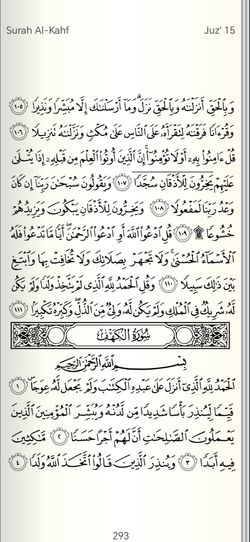 Surah Al-Kahf Juz' 15
وَبِالْحَقِّ أَنزَلْنَٰهُ وَبِالْحَقِّ نَزَلَ ۗ وَمَآ أَرْسَلْنَٰكَ إِلَّا مُبَشِّرًا وَنَذِيرًا ١٠٥
وَقُرْءَانًا فَرَقْنَٰهُ لِتَقْرَأَهُۥ عَلَى النَّاسِ عَلَىٰ مُكْثٍ وَنَزَّلْنَٰهُ تَنزِيلًا ١٠٦
قُلْ ءَامِنُوا۟ بِهِۦٓ أَوْ لَا تُؤْمِنُوٓا۟ ۚ إِنَّ الَّذِينَ أُوتُوا۟ الْعِلْمَ مِن قَبْلِهِۦٓ إِذَا يُتْلَىٰ
عَلَيْهِمْ يَخِرُّونَ لِلْأَذْقَانِ سُجَّدًا ١٠٧ وَيَقُولُونَ سُبْحَٰنَ رَبِّنَآ إِن كَانَ
وَعْدُ رَبِّنَا لَمَفْعُولًا ١٠٨ وَيَخِرُّونَ لِلْأَذْقَانِ يَبْكُونَ وَيَزِيدُهُمْ
خُشُوعًا ۩ ١٠٩ قُلِ ادْعُوا۟ اللَّهَ أَوِ ادْعُوا۟ الرَّحْمَٰنَ ۖ أَيًّا مَّا تَدْعُوا۟ فَلَهُ
الْأَسْمَآءُ الْحُسْنَىٰ ۚ وَلَا تَجْهَرْ بِصَلَاتِكَ وَلَا تُخَافِتْ بِهَا وَابْتَغِ
بَيْنَ ذَٰلِكَ سَبِيلًا ١١٠ وَقُلِ الْحَمْدُ لِلَّهِ الَّذِى لَمْ يَتَّخِذْ وَلَدًا وَلَمْ يَكُن
لَّهُۥ شَرِيكٌ فِى الْمُلْكِ وَلَمْ يَكُن لَّهُۥ وَلِىٌّ مِّنَ الذُّلِّ ۖ وَكَبِّرْهُ تَكْبِيرًۢا ١١١
سُورَةُ الْكَهْفِ
بِسْمِ اللَّهِ الرَّحْمَٰنِ الرَّحِيمِ
الْحَمْدُ لِلَّهِ الَّذِىٓ أَنزَلَ عَلَىٰ عَبْدِهِ الْكِتَٰبَ وَلَمْ يَجْعَل لَّهُۥ عِوَجَا ۜ ١
قَيِّمًا لِّيُنذِرَ بَأْسًا شَدِيدًا مِّن لَّدُنْهُ وَيُبَشِّرَ الْمُؤْمِنِينَ الَّذِينَ
يَعْمَلُونَ الصَّٰلِحَٰتِ أَنَّ لَهُمْ أَجْرًا حَسَنًا ٢ مَّٰكِثِينَ
فِيهِ أَبَدًا ٣ وَيُنذِرَ الَّذِينَ قَالُوا۟ اتَّخَذَ اللَّهُ وَلَدًا ٤
293